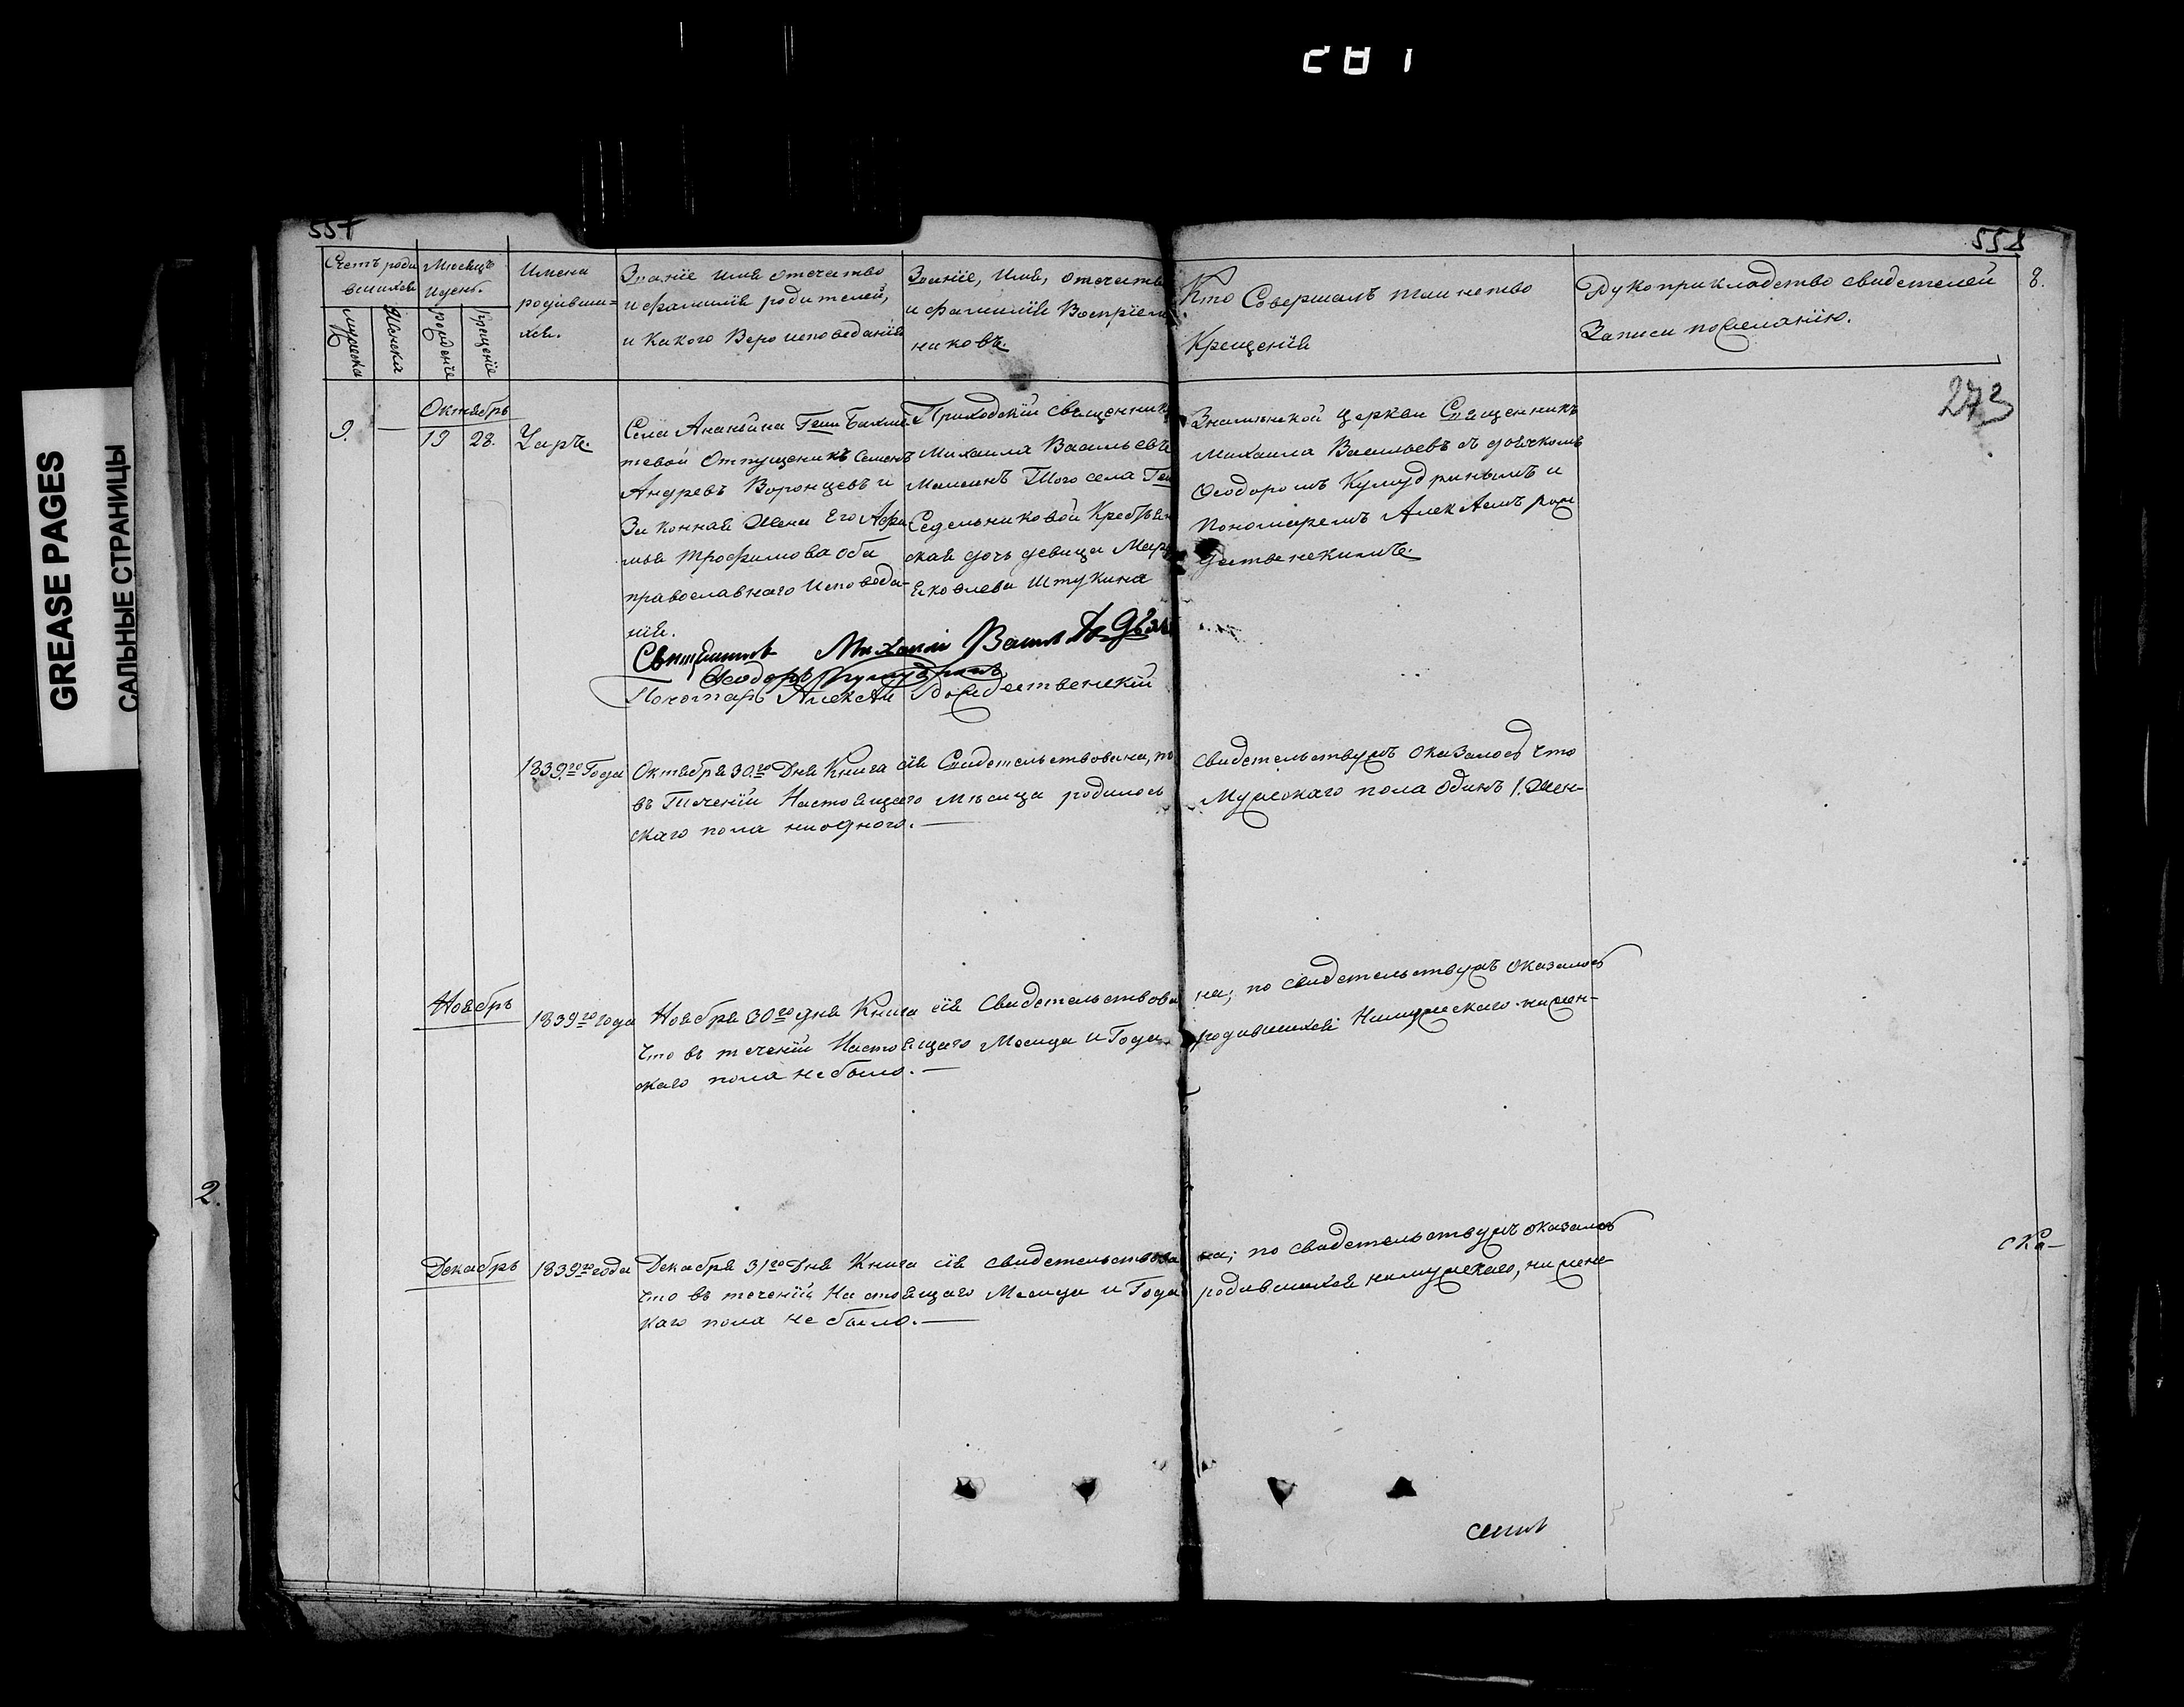 281
GREASE PAGES
САЛЬНЫЕ СТРАНИЦЫ
557
558
Счетъ роди
вшихся
Мужеска
Женска
Месяцъ
и день.
рождение
Крещение
Имена
родивши=
хся.
Званїе имя отечество
и фамилїя родителей,
и Какого Вероисповеданїя
Званїе, Имя, отечество
и фамилїя Воспрїем
никовъ.
Кто Совершалъ таинство
Крещенїя
Рукоприкладство свидетелей
Записи по желанїю.
8.
273
Октябрь
9.
—
19
28.
Уаръ.
Села Ананьина Гжи Бахме
тевой Отпущеникъ Семенъ
Андревъ Воронцевъ и
Законная Жена Его Афи
мья Трофимова оба
православнаго Исповеда-
нїя.
Приходскїй священник
Михаила Васильевъ
Мамин Тогоже села Гжи
Седельниковой Крестьян
ская дочь девица Мар
Яковлева Штукина
Знаменской церкви Священникъ
Михаила Васильевъ съ дьячкомъ
Феодоромъ Кумудринымъ и
Пономаремъ Алекѣемъ рож
дественскимъ.
Священникъ Михаилъ Васильевъ Дьяч
Феодоръ Кумудринъ
Пономарь Алекѣй Рождественскїй
1839го Года
Октября 30го Дня Книга сїя Свидетельствована, по свидетельствумъ оказалось что
въ Теченїи Настоящаго месяца родилось Мужскаго пола одинъ 1. Жен-
скаго пола ниодного.—
Ноябрь
1839го года
Ноября 30го дня Книга сїя Свидетельствова на; по свидетельствумъ оказалось
Что въ теченїи Настоящаго Месяца и Года родившихся Нимужескаго нижен-
скаго пола небыло.—
Декабрь
1839го года
Декабря 31го Дня Книга сїя свидетельствова на; по свидетельствумъ оказалось
Что въ теченїи Настоящаго Месяца и Года родившихся нимужескаго, ниженс
каго пола не было.—
2.
ска-